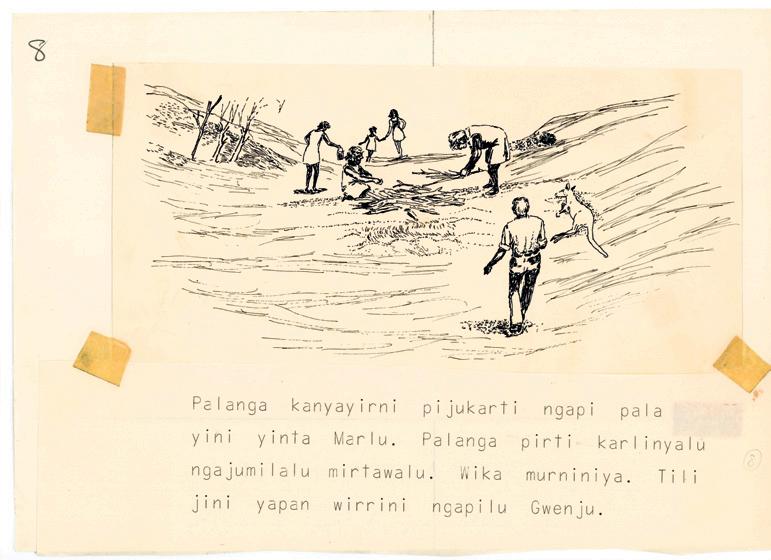 8
Palanga kanyayirni pijukarti ngapi pala
yini yinta Marlu. Palanga pirti karlinyalu
ngajumilalu mirtawalu. Wika murniniya. Tili
jini yapan wirrini ngapilu Gwenju.
8